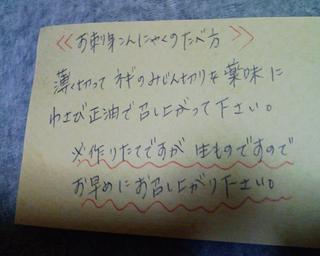 《お刺身こんにゃくのたべ方》
薄く切って ネギのみじん切りを薬味に
わさび正油で召し上がって下さい。
※作りたてですが 生ものですので
お早めにお召し上がり下さい。